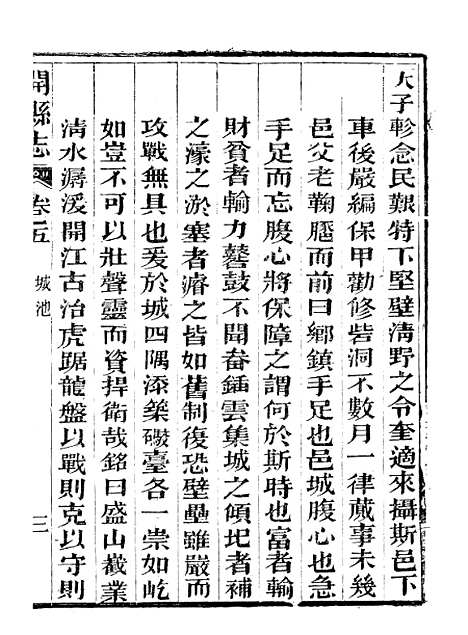 天子軫念民艱特下堅壁清野之令奎適來攝斯邑下
車後嚴編保甲勸修砦洞不數月一律蕆事未幾
邑父老鞠䠆而前曰鄉鎮手足也邑城腹心也急
手足而忘腹心將保障之謂何於斯時也富者輸
財貧者輸力鼛鼓不聞畚鍤雲集城之傾圮者補
之濠之淤塞者濬之皆如舊制復恐壁壘雖嚴而
攻戰無具也爰於城四隅添築礮臺各一崇如屹
如豈不可以壯聲靈而資捍衛哉銘曰盛山嶻業
清水潺湲開江古治虎踞龍盤以戰則克以守則
開縣志 卷五 城池 三